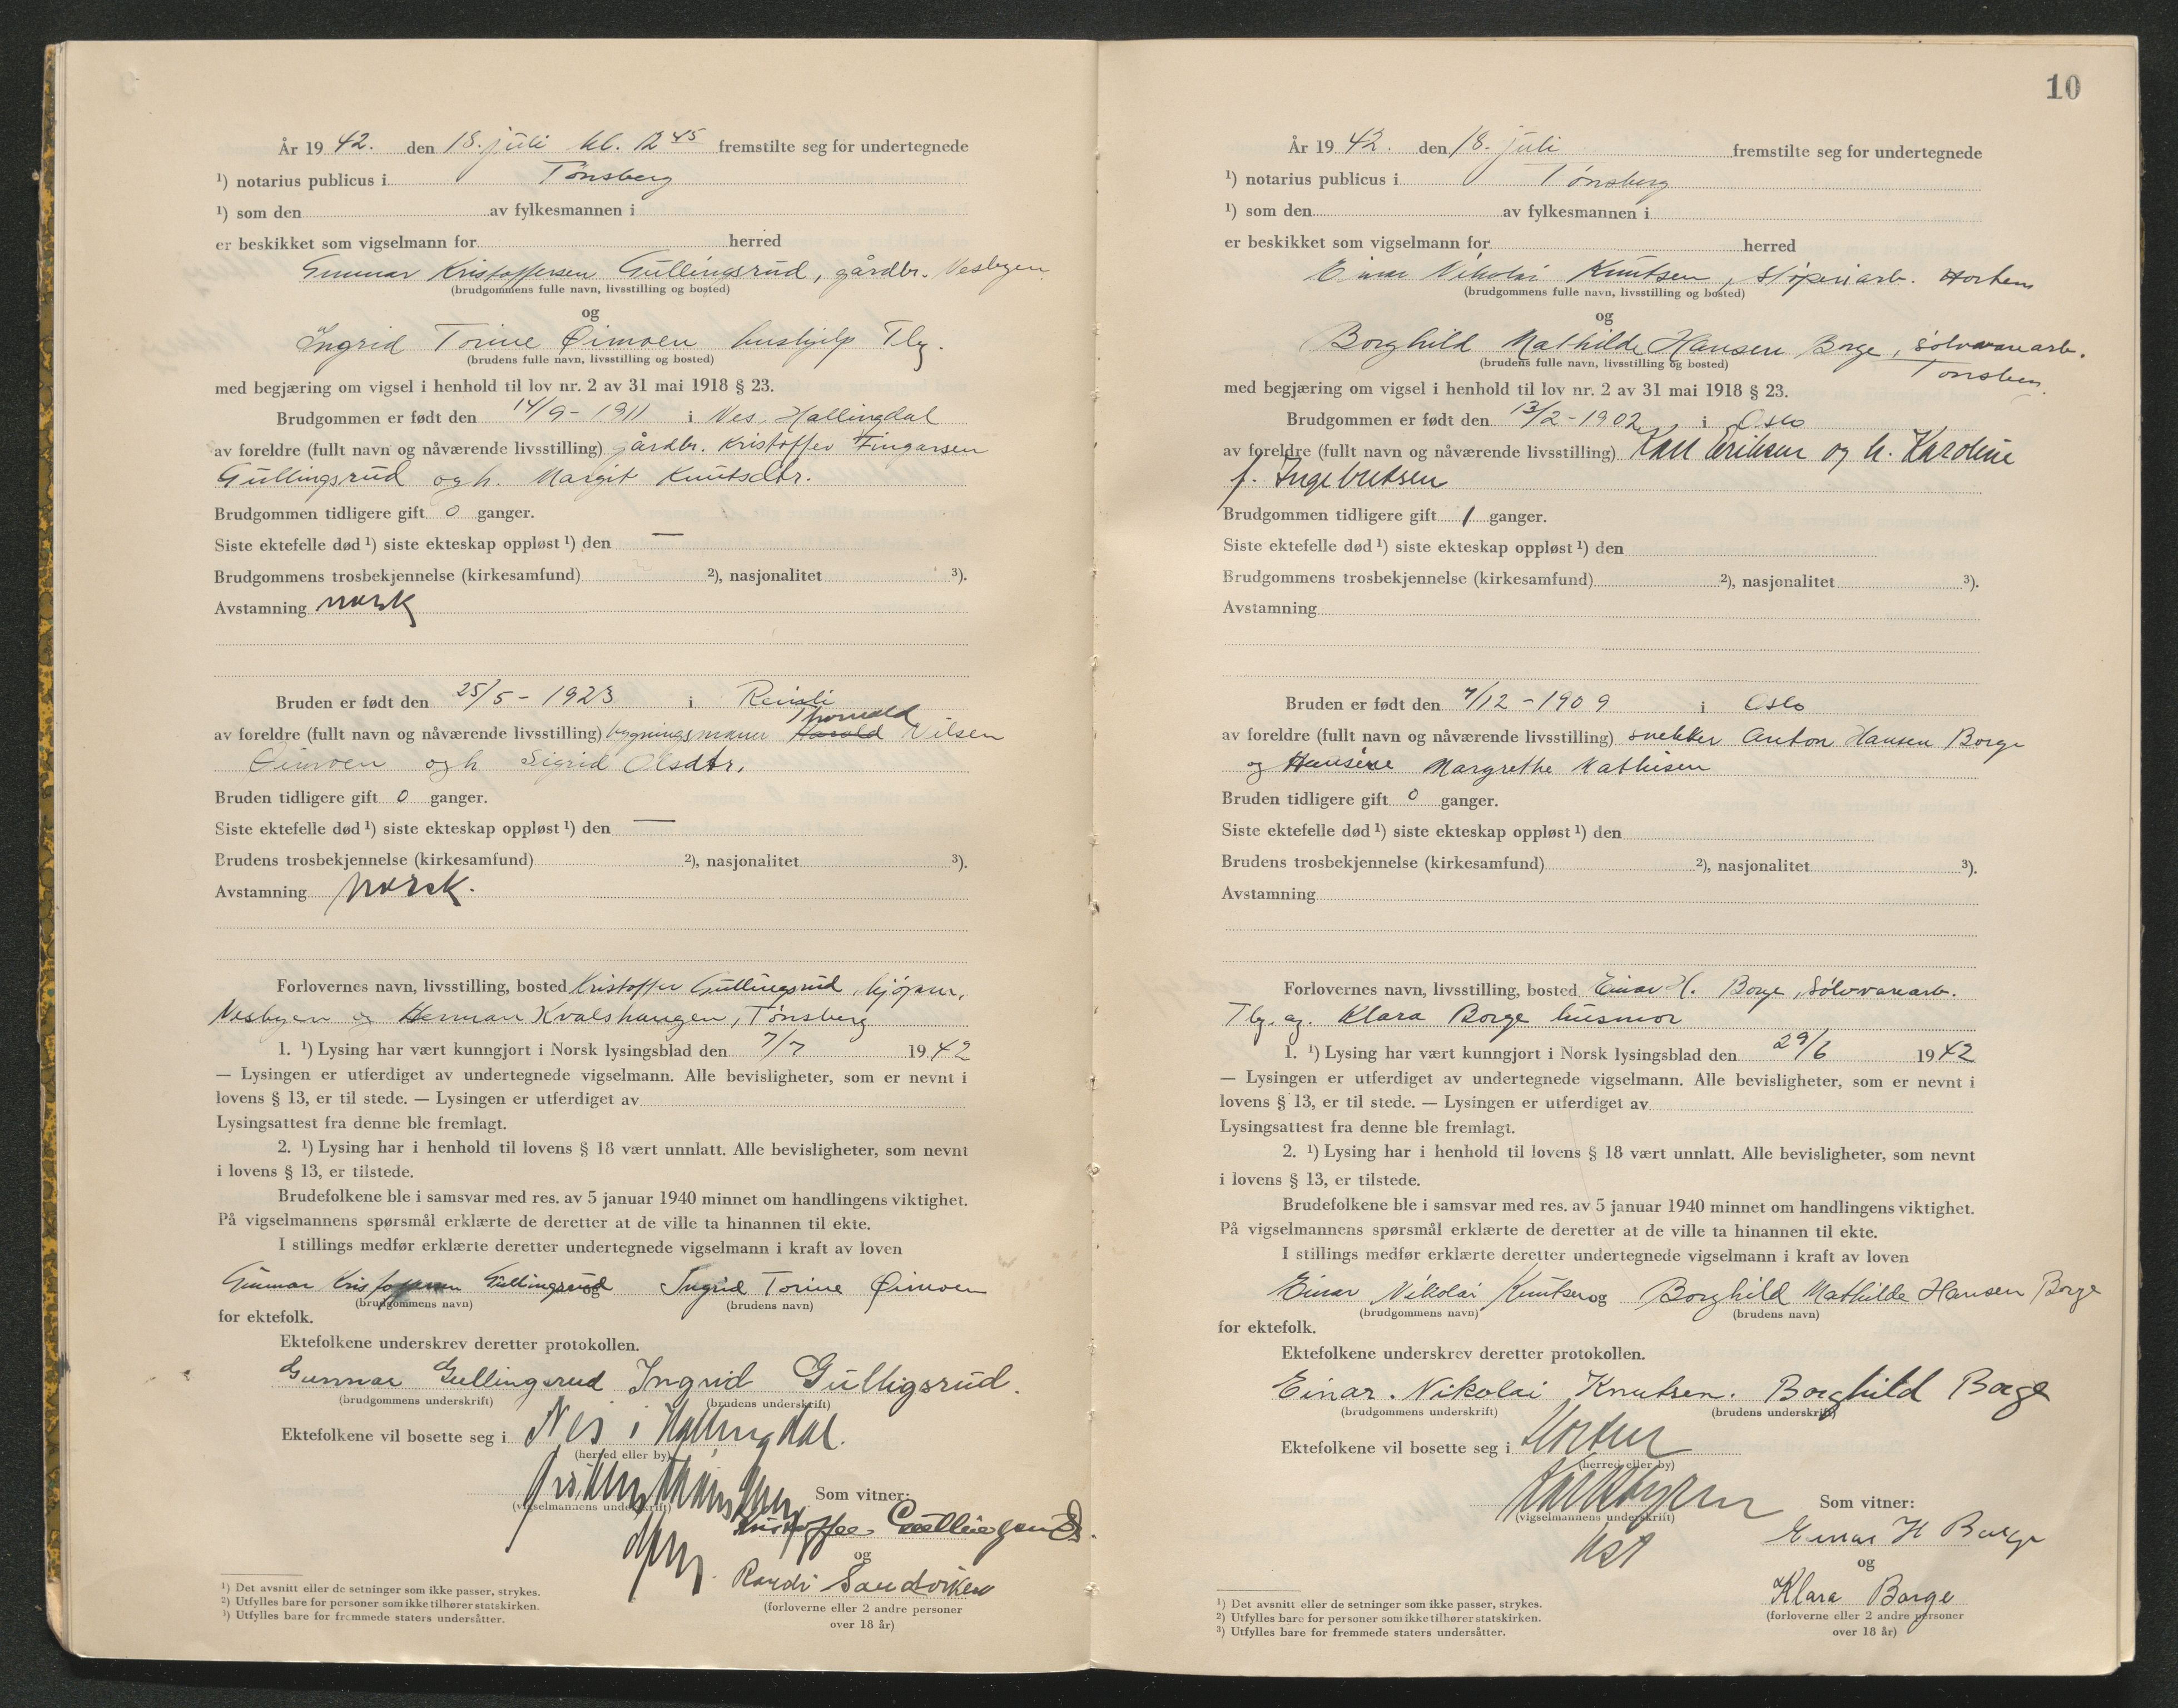 År 19 42. den 18. juli kl. 12 45 fremstilte seg for undertegnede
¹) notarius publicus i Tønsberg
¹) som den av fylkesmannen i
er beskikket som vigselmann for herred
Gunnar Kristoffersen Gullingsrud, gårdbr. Nesbyen
(brudgommens fulle navn, livsstilling og bosted)
og
Ingrid Torine Øimoen hushjelp Tbg.
(brudens fulle navn, livsstilling og bosted)
med begjæring om vigsel i henhold til lov nr. 2 av 31 mai 1918 § 23.
Brudgommen er født den 14/9 - 1911 i Nes, Hallingdal
av foreldre (fullt navn og nåværende livsstilling) gårdbr. Kristoffer Fingarsen
Gullingsrud og h. Margit Knutsdtr.
Brudgommen tidligere gift 0 ganger.
Siste ektefelle død ¹) siste ekteskap oppløst ¹) den —
Brudgommens trosbekjennelse (kirkesamfund) ²), nasjonalitet ³).
Avstamning norsk
Bruden er født den 25/5 - 1923 i
Thorvald
av foreldre (fullt navn og nåværende livsstilling) bygningsmann Harald Nilsen
Øimoen og h Sigrid Olsdtr.
Bruden tidligere gift 0 ganger.
Siste ektefelle død ¹) siste ekteskap oppløst ¹) den —
Brudens trosbekjennelse (kirkesamfund) ²), nasjonalitet ³).
Avstamning norsk.
Forlovernes navn, livsstilling, bosted Kristoffer Gullingsrud,
Nesbyen og Herman Kvalshaugen, Tønsberg
1. ¹) Lysing har vært kunngjort i Norsk lysingsblad den 7/7 19 42
— Lysingen er utferdiget av undertegnede vigselmann. Alle bevisligheter, som er nevnt i
lovens § 13, er til stede. — Lysingen er utferdiget av
Lysingsattest fra denne ble fremlagt.
2. ¹) Lysing har i henhold til lovens § 18 vært unnlatt. Alle bevisligheter, som nevnt
i lovens § 13, er tilstede.
Brudefolkene ble i samsvar med res. av 5 januar 1940 minnet om handlingens viktighet.
På vigselmannens spørsmål erklærte de deretter at de ville ta hinannen til ekte.
I stillings medfør erklærte deretter undertegnede vigselmann i kraft av loven
Gunnar Kristoffersen Gullingsrud og Ingrid Torine Øimoen
(brudgommens navn) (brudens navn)
for ektefolk.
Ektefolkene underskrev deretter protokollen.
Gunnar Gullingsrud Ingrid Gulligsrud.
(brudgommens underskrift) (brudens underskrift)
Ektefolkene vil bosette seg i Nes i Hallingdal.
(herred eller by)
Som vitner:
(vigselmannens underskrift)
Kristoffer Gullingsrud.
og
Randi Sandviken
(forloverne eller 2 andre personer
over 18 år)
¹) Det avsnitt eller de setninger som ikke passer, strykes.
²) Utfylles bare for personer som ikke tilhører statskirken.
³) Utfylles bare for fremmede staters undersåtter.
10
År 19 42. den 18. juli fremstilte seg for undertegnede
¹) notarius publicus i Tønsberg
¹) som den av fylkesmannen i
er beskikket som vigselmann for herred
Einar Nikolai Knutsen, støperiarb. Horten
(brudgommens fulle navn, livsstilling og bosted)
og
Borghild Mathilde Hansen Borge, sølvvarearb.
(brudens fulle navn, livsstilling og bosted)
Tønsberg
med begjæring om vigsel i henhold til lov nr. 2 av 31 mai 1918 § 23.
Brudgommen er født den 13/2 - 1902 i Oslo
av foreldre (fullt navn og nåværende livsstilling) Karl Eriksen og h. Karoline
f. Ingebretsen
Brudgommen tidligere gift 1 ganger.
Siste ektefelle død ¹) siste ekteskap oppløst ¹) den
Brudgommens trosbekjennelse (kirkesamfund) ²), nasjonalitet ³).
Avstamning
Bruden er født den 7/12 - 1909 i Oslo
av foreldre (fullt navn og nåværende livsstilling) snekker Anton Hansen Borge
og Hansine Margrethe Mathisen
Bruden tidligere gift 0 ganger.
Siste ektefelle død ¹) siste ekteskap oppløst ¹) den
Brudens trosbekjennelse (kirkesamfund) ²), nasjonalitet ³).
Avstamning
Forlovernes navn, livsstilling, bosted Einar H. Borge, sølvvarearb.
Tbg. og. Klara Borge husmor
1. ¹) Lysing har vært kunngjort i Norsk lysingsblad den 29/6 19 42
— Lysingen er utferdiget av undertegnede vigselmann. Alle bevisligheter, som er nevnt i
lovens § 13, er til stede. — Lysingen er utferdiget av
Lysingsattest fra denne ble fremlagt.
2. ¹) Lysing har i henhold til lovens § 18 vært unnlatt. Alle bevisligheter, som nevnt
i lovens § 13, er tilstede.
Brudefolkene ble i samsvar med res. av 5 januar 1940 minnet om handlingens viktighet.
På vigselmannens spørsmål erklærte de deretter at de ville ta hinannen til ekte.
I stillings medfør erklærte deretter undertegnede vigselmann i kraft av loven
Einar Nikolai Knutsen og Borghild Mathilde Hansen Borge
(brudgommens navn) (brudens navn)
for ektefolk.
Ektefolkene underskrev deretter protokollen.
Einar. Nikolai Knutsen. Borghild Borge
(brudgommens underskrift) (brudens underskrift)
Ektefolkene vil bosette seg i Horten
(herred eller by)
Som vitner:
(vigselmannens underskrift)
Einar H Borge
og
Klara Borge
(forloverne eller 2 andre personer
over 18 år)
¹) Det avsnitt eller de setninger som ikke passer, strykes.
²) Utfylles bare for personer som ikke tilhører statskirken.
³) Utfylles bare for fremmede staters undersåtter.